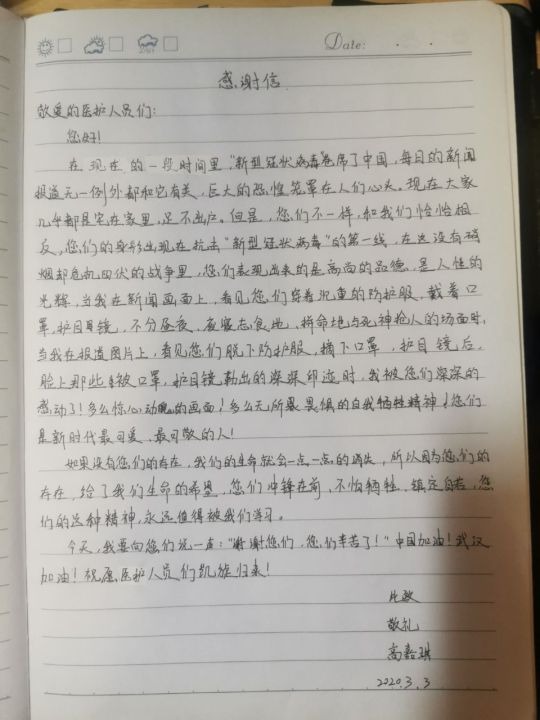 Date: . .
感谢信
敬爱的医护人员们:
您好!
在现在的一段时间里,“新型冠状病毒”卷席了中国,每日的新闻
报道无一例外都和它有关,巨大的恐惶笼罩在人们心头。现在大家
几乎都是宅在家里,足不出户。但是,您们不一样,和我们恰恰相
反,您们的身形出现在抗击“新型冠状病毒”的第一线,在这没有硝
烟却危机四伏的战争里,您们表现出来的是高尚的品德,是人性的
光辉,当我在新闻画面上,看见您们穿着沉重的防护服,戴着口
罩,护目镜,不分昼夜,废寝忘食地,拼命地与死神抢人的场面时,
当我在报道图片上,看见您们脱下防护服,摘下口罩,护目镜后,
脸上那些被口罩,护目镜勒出的深深印迹时,我被您们深深的
感动了!多么惊心动魄的画面!多么无所畏惧的自我牺牲精神!您们
是新时代最可爱、最可敬的人!
如果没有您们的存在,我们的生命就会一点一点的消失,所以因为您们的
存在,给了我们生命的希望,您们冲锋在前,不怕牺牲,镇定自若,您
们的这种精神,永远值得被我们学习。
今天,我要向您们说一声:“谢谢您们,您们辛苦了!”中国加油!武汉
加油!祝愿医护人员们凯旋归来!
此致
敬礼
高嘉琪
2020.3.3